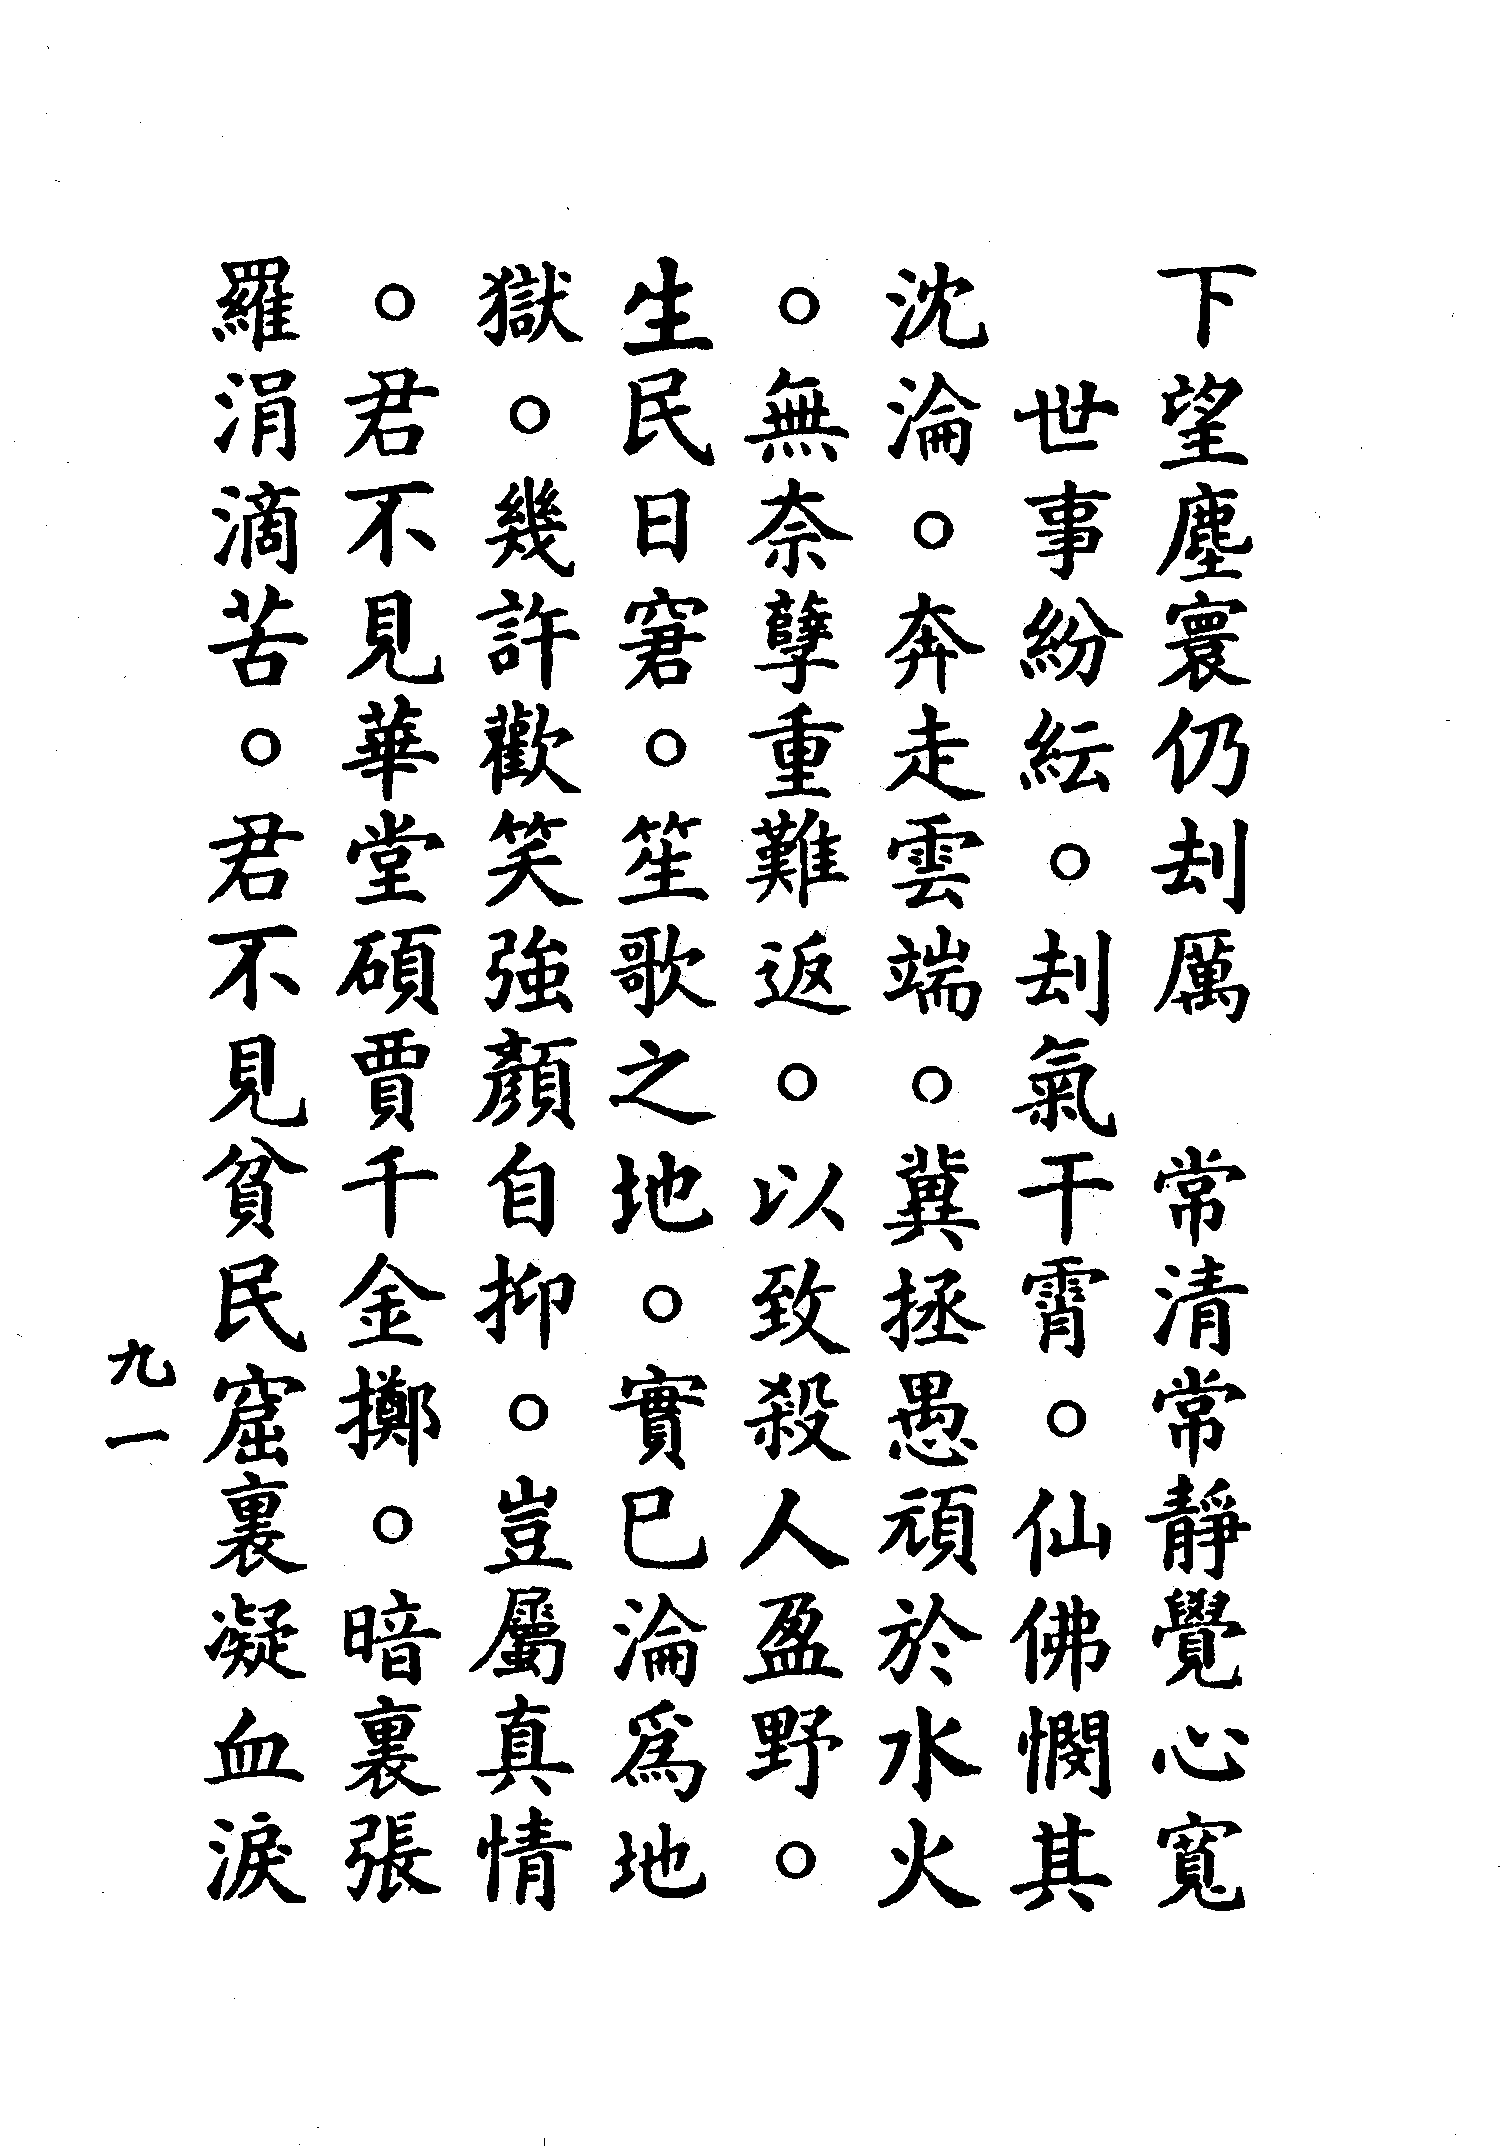 下望塵寰仍刦厲　常清常靜覺心寬
世事紛紜。刦氣干霄。仙佛憫其
沈淪。奔走雲端。冀拯愚頑於水火
。無奈孽重難返。以致殺人盈野。
生民日窘。笙歌之地。實已淪為地
獄。幾許歡笑強顏自抑。豈屬真情
。君不見華堂碩賈千金擲。暗裏張
羅涓滴苦。君不見貧民窟裏凝血淚
九一